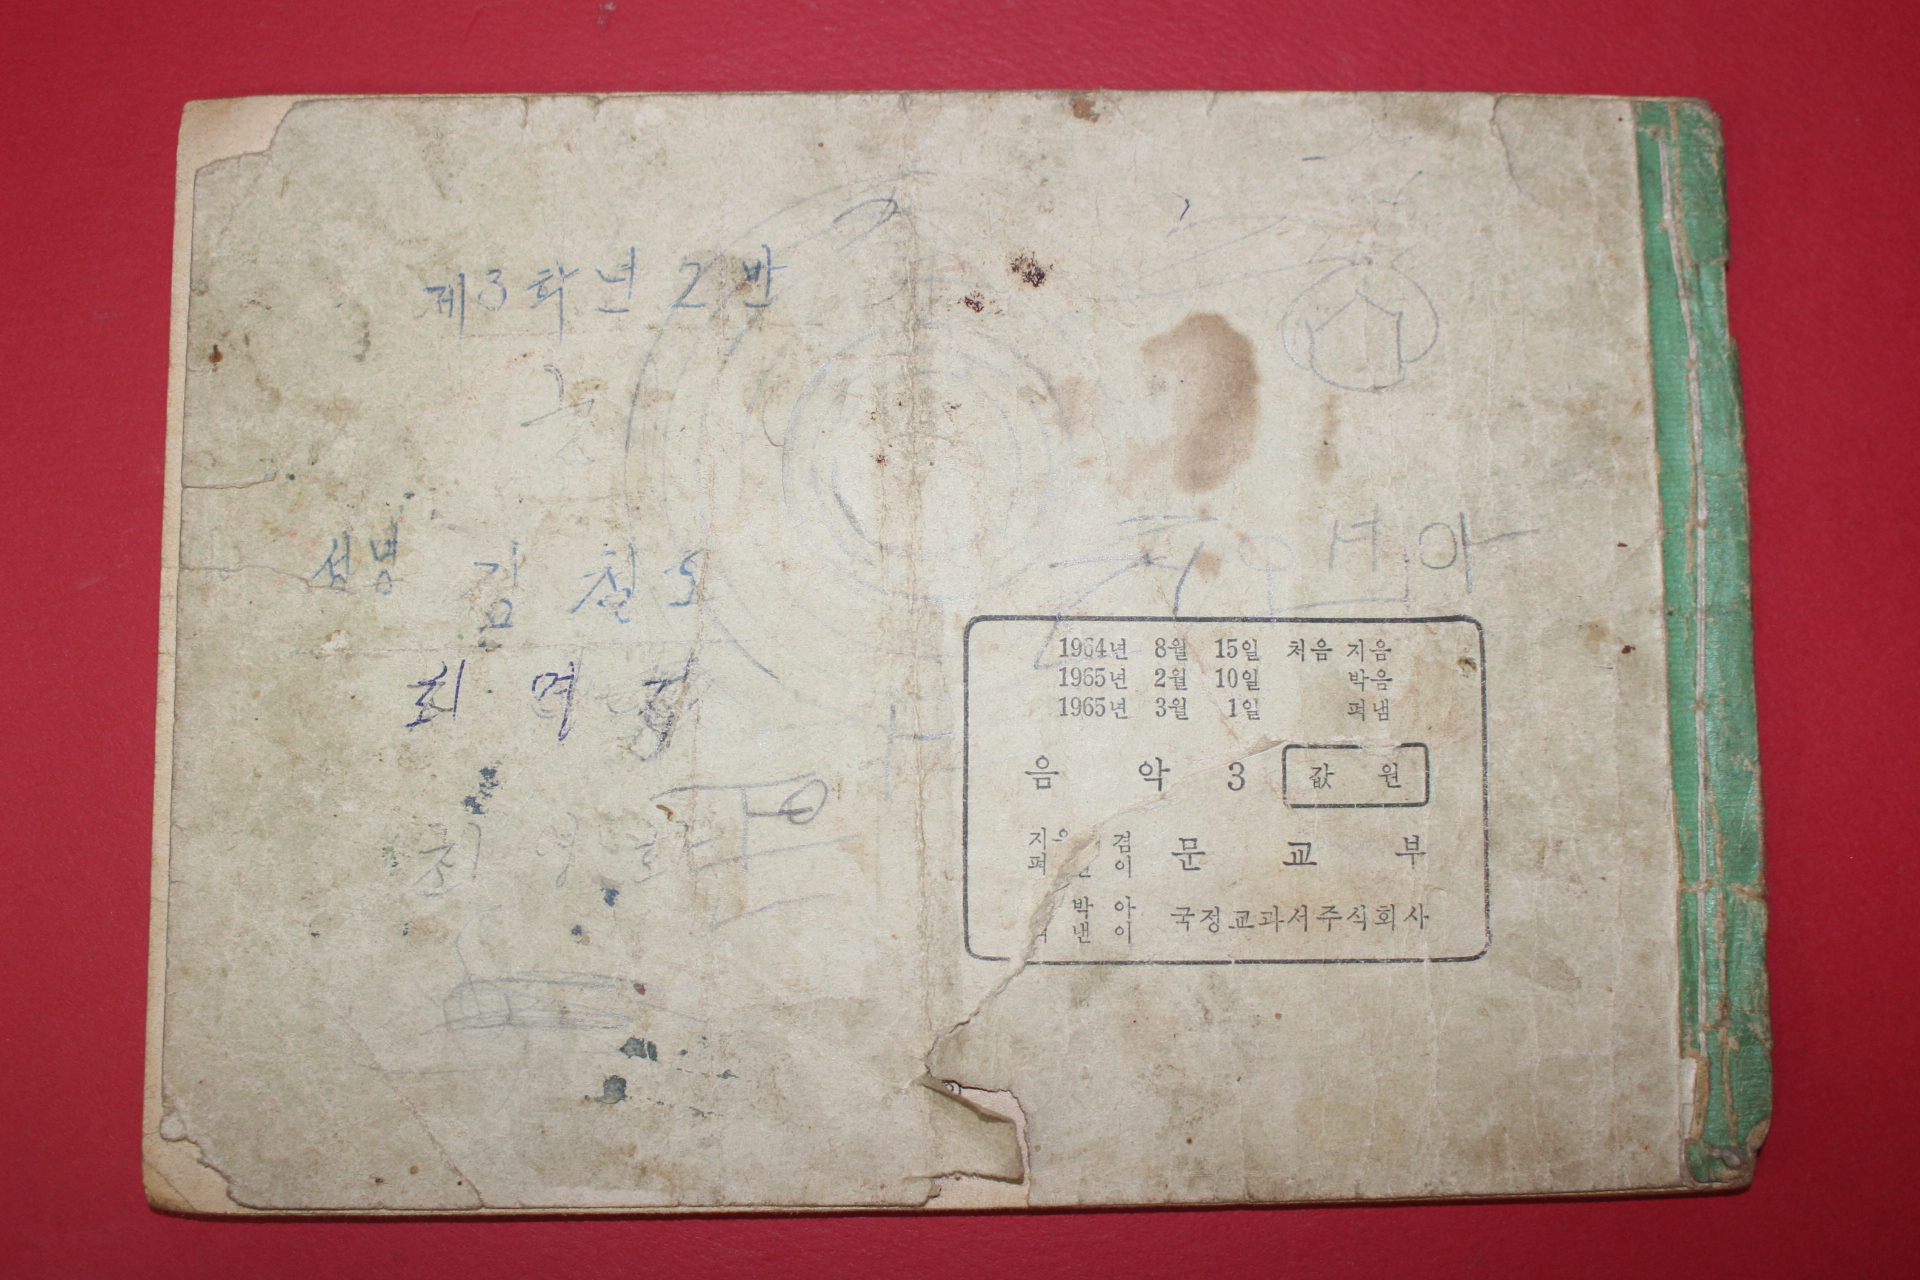 제3학년 2반
성명 김철오
최명
최영
1964년 8월 15일 처음 지음
1965년 2월 10일 박음
1965년 3월 1일 펴냄
음악 3 값 원
지은 겸
펴 이 문교부
박아
낸이 국정교과서주식회사